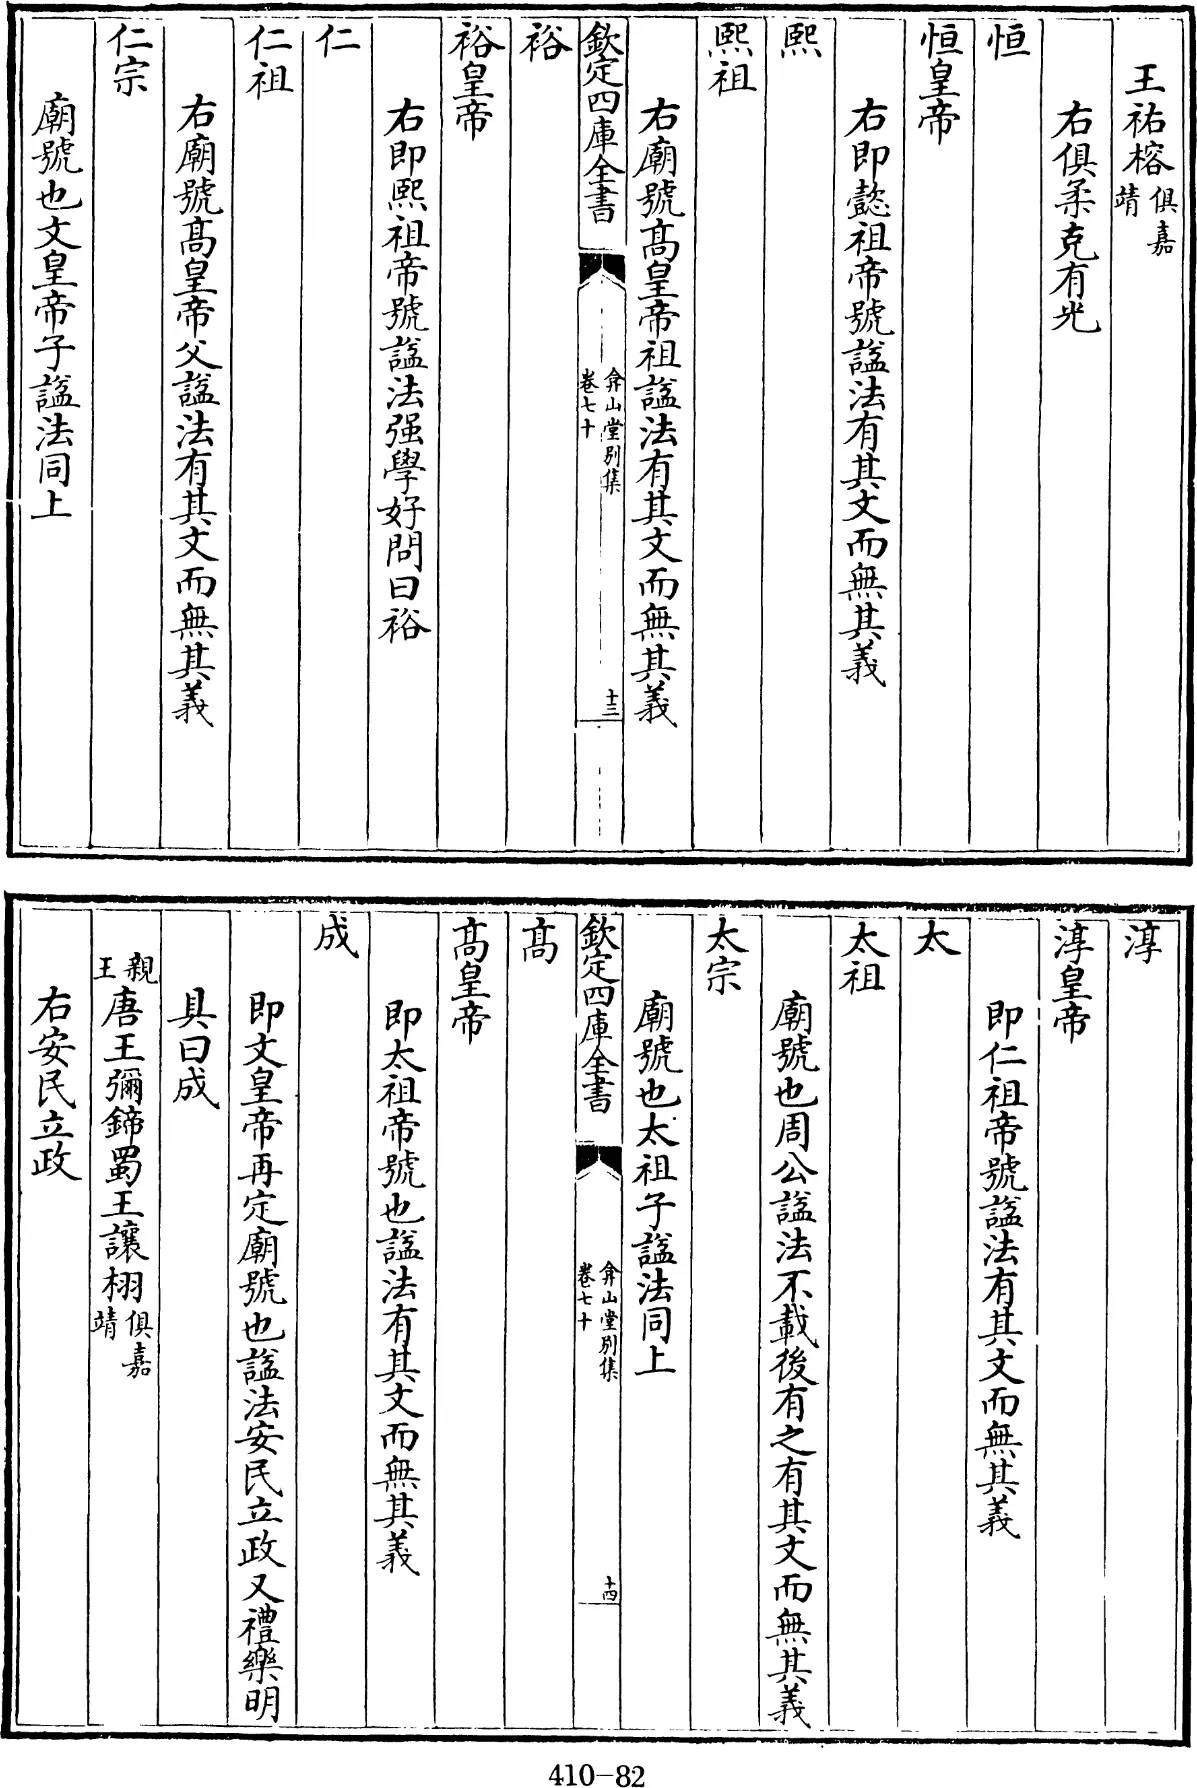 王祐榕俱嘉靖
右俱柔克有光
恒
恒皇帝
右即懿祖帝號諡法有其文而無其義
熙
熙祖
右廟號髙皇帝祖諡法有其文而無其義
欽定四庫全書
弇山堂别集
卷七十
十三
裕
裕皇帝
右即熙祖帝號諡法强學好問曰裕
仁
仁祖
右廟號髙皇帝父諡法有其文而無其義
仁宗
廟號也文皇帝子諡法同上
淳
淳皇帝
即仁祖帝號諡法有其文而無其義
太
太祖
廟號也周公諡法不載後有之有其文而無其義
太宗
廟號也太祖子諡法同上
欽定四庫全書
弇山堂别集
卷七十
十四
髙
髙皇帝
即太祖帝號也諡法有其文而無其義
成
即文皇帝再定廟號也諡法安民立政又禮樂明
具曰成
親王唐王彌鍗蜀王讓栩俱嘉靖
右安民立政
410-82